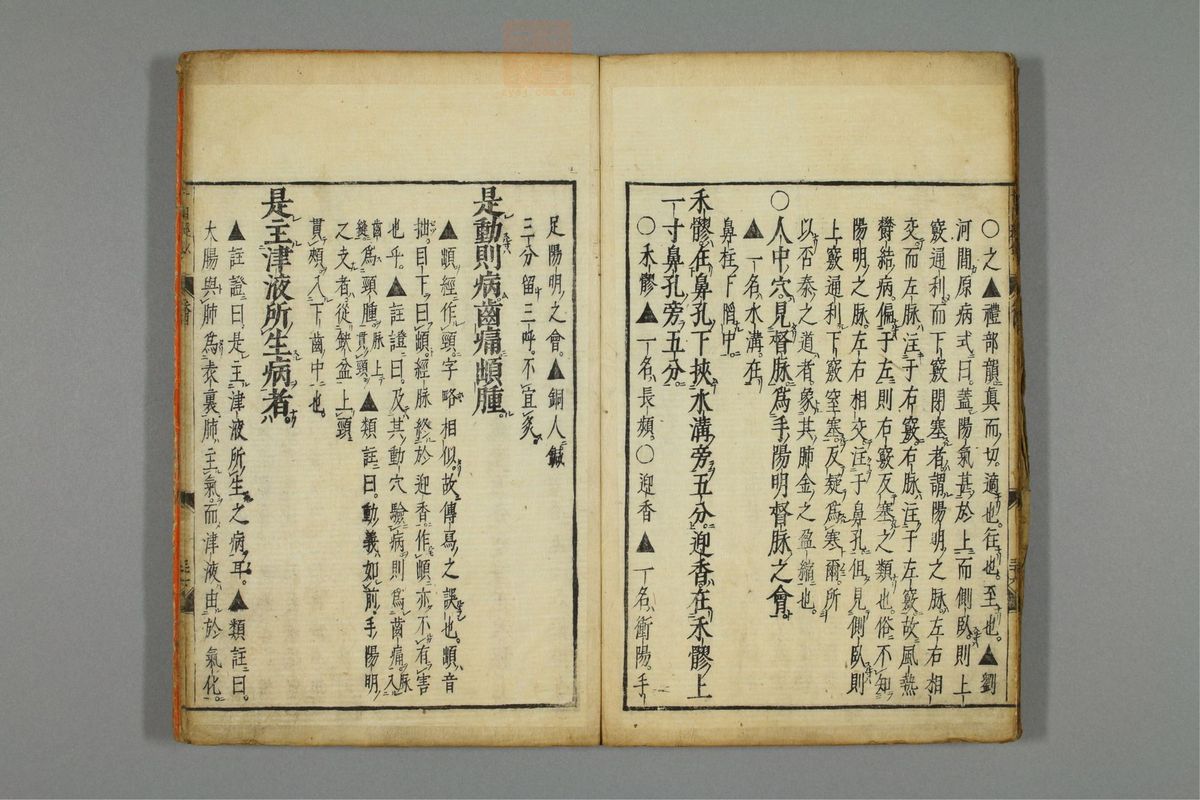 〇之▲禮部韻真而切適也往也至也▲劉
河間原病式曰蓋陽氣甚於上而側臥則上
竅通利而下竅閉塞者謂陽明之脉左右相
交而左脉注于右竅右脉注于左竅故風熱
欝結病偏于左則右竅反塞之類也俗不知
陽明之脉左右相交注于鼻孔但見側臥則
上竅通利下竅窒塞反疑為塞爾所
以否泰之道者象其肺金之盈縮也
〇人中穴見督脉為手陽明督脉之會
▲一名水溝在
鼻柱下䐃中
禾髎在鼻孔下挾水溝旁五分迎香在禾髎上
一寸鼻孔旁五分
〇禾髎▲一名長頻〇迎香▲一名衝陽手
足陽明之會▲銅人鍼
三分留三呼不宜灸
是動則病齒痛䪼腫
▲䪼經作頸字略相似故傳寫之誤也䪼音
拙目下曰䪼經脉終於迎香作䪼亦不有害
也乎▲註證曰及其動穴驗病則為齒痛入脉
齒縫為頸腫脉上貫頸▲類註曰動義如前手陽明
之支者從缺盆上頸
貫頰入下齒中也
是主津液所生病者
▲註證曰是主津液所生之病耳▲類註曰
大腸與肺為表裏肺主氣而津液由於氣化